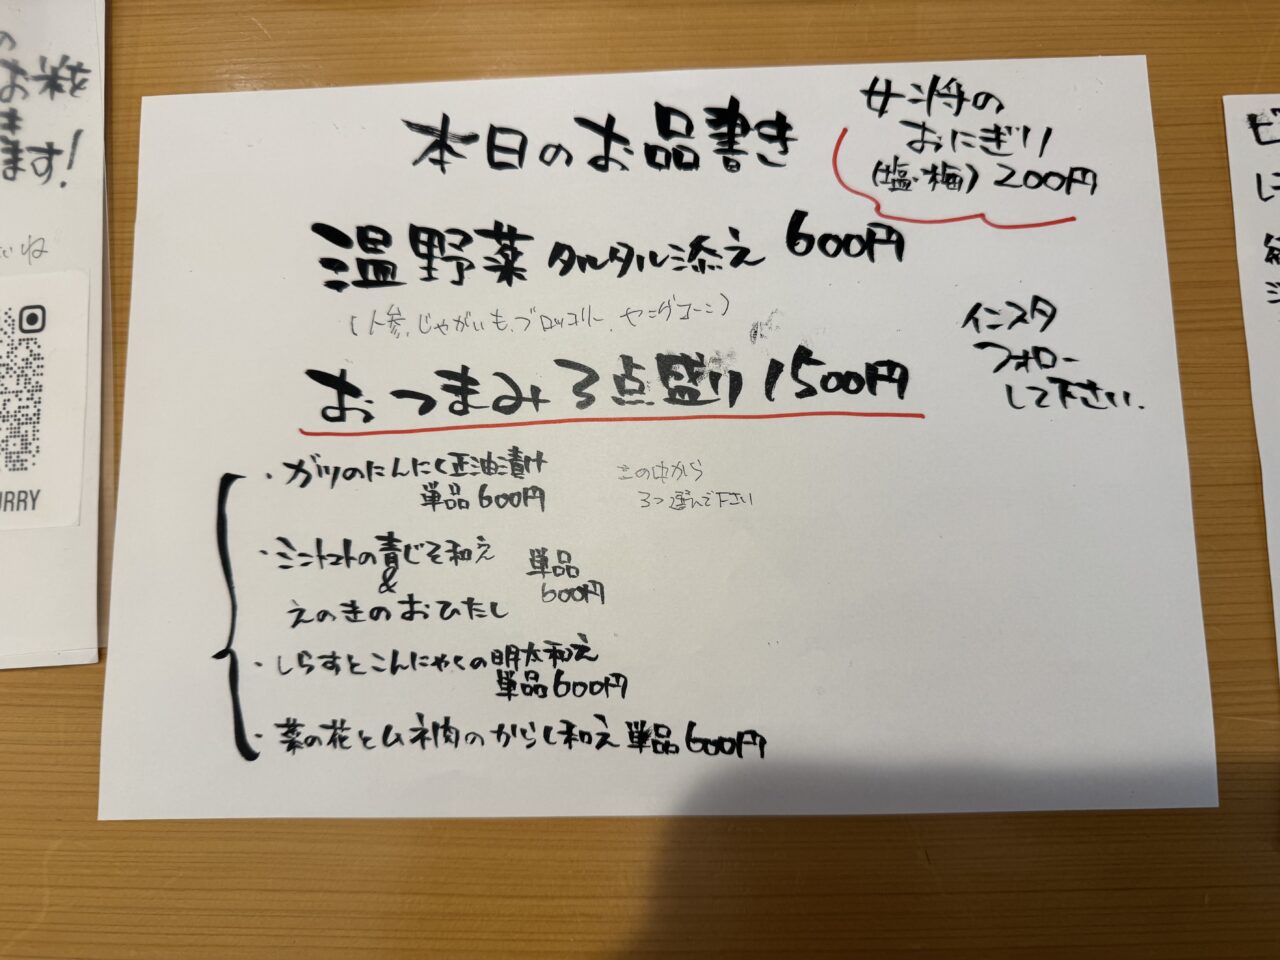 本日のお品書き
女将の
おにぎり
(塩・梅) 200円
温野菜 タルタル添え 600円
(人参、じゃがいも、ブロッコリー、ヤングコーン)
おつまみ3点盛り 1500円
インスタ
フォロー
して下さい.
・ガツのにんにく正油漬け
単品 600円
この中から
3つ選んで下さい
・ミニトマトの青じそ和え
&
えのきのおひたし
単品
600円
・しらすとこんにゃくの明太和え
単品 600円
・菜の花とムネ肉のからし和え 単品 600円
の
お米を
き
ます!
いね
URRY
ビ